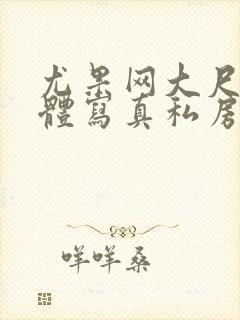 尤果网大尺
體寫真私房
咩咩桑